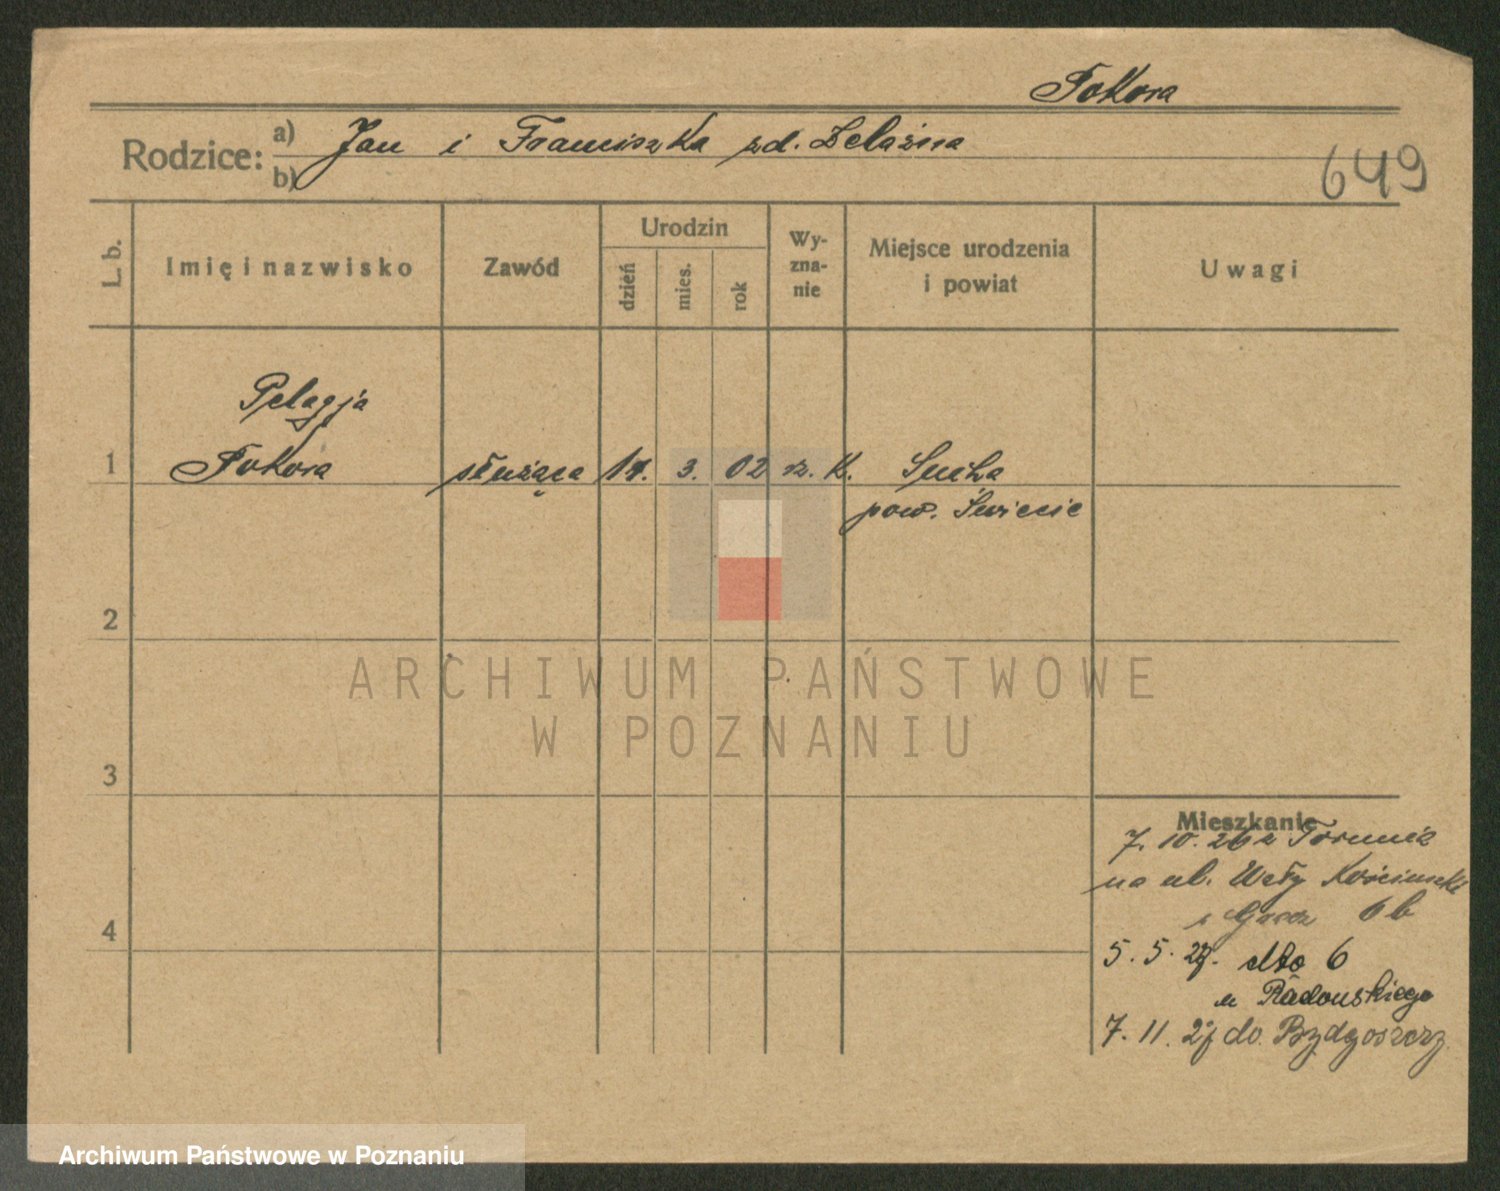 Fokora
Rodzice: a) Jan i Franciszka zd. Żelazna
b)
649
L. b.
Imię i nazwisko
Zawód
Urodzin
dzień
mies.
rok
Wy-
zna-
nie
Miejsce urodzenia
i powiat
Uwagi
Pelagja
1 Fokora służąca 17. 3. 02 rz. K. Sucha
pow. Świecie
2
3
4
Mieszkanie
7. 10. 26 z Torunia
na ul. Wały
6 b
5. 5. 27. dto 6
u Radouskiego
7. 11. 27 do Bydgoszczy
ARCHIWUM PAŃSTWOWE
W POZNANIU
Archiwum Państwowe w Poznaniu